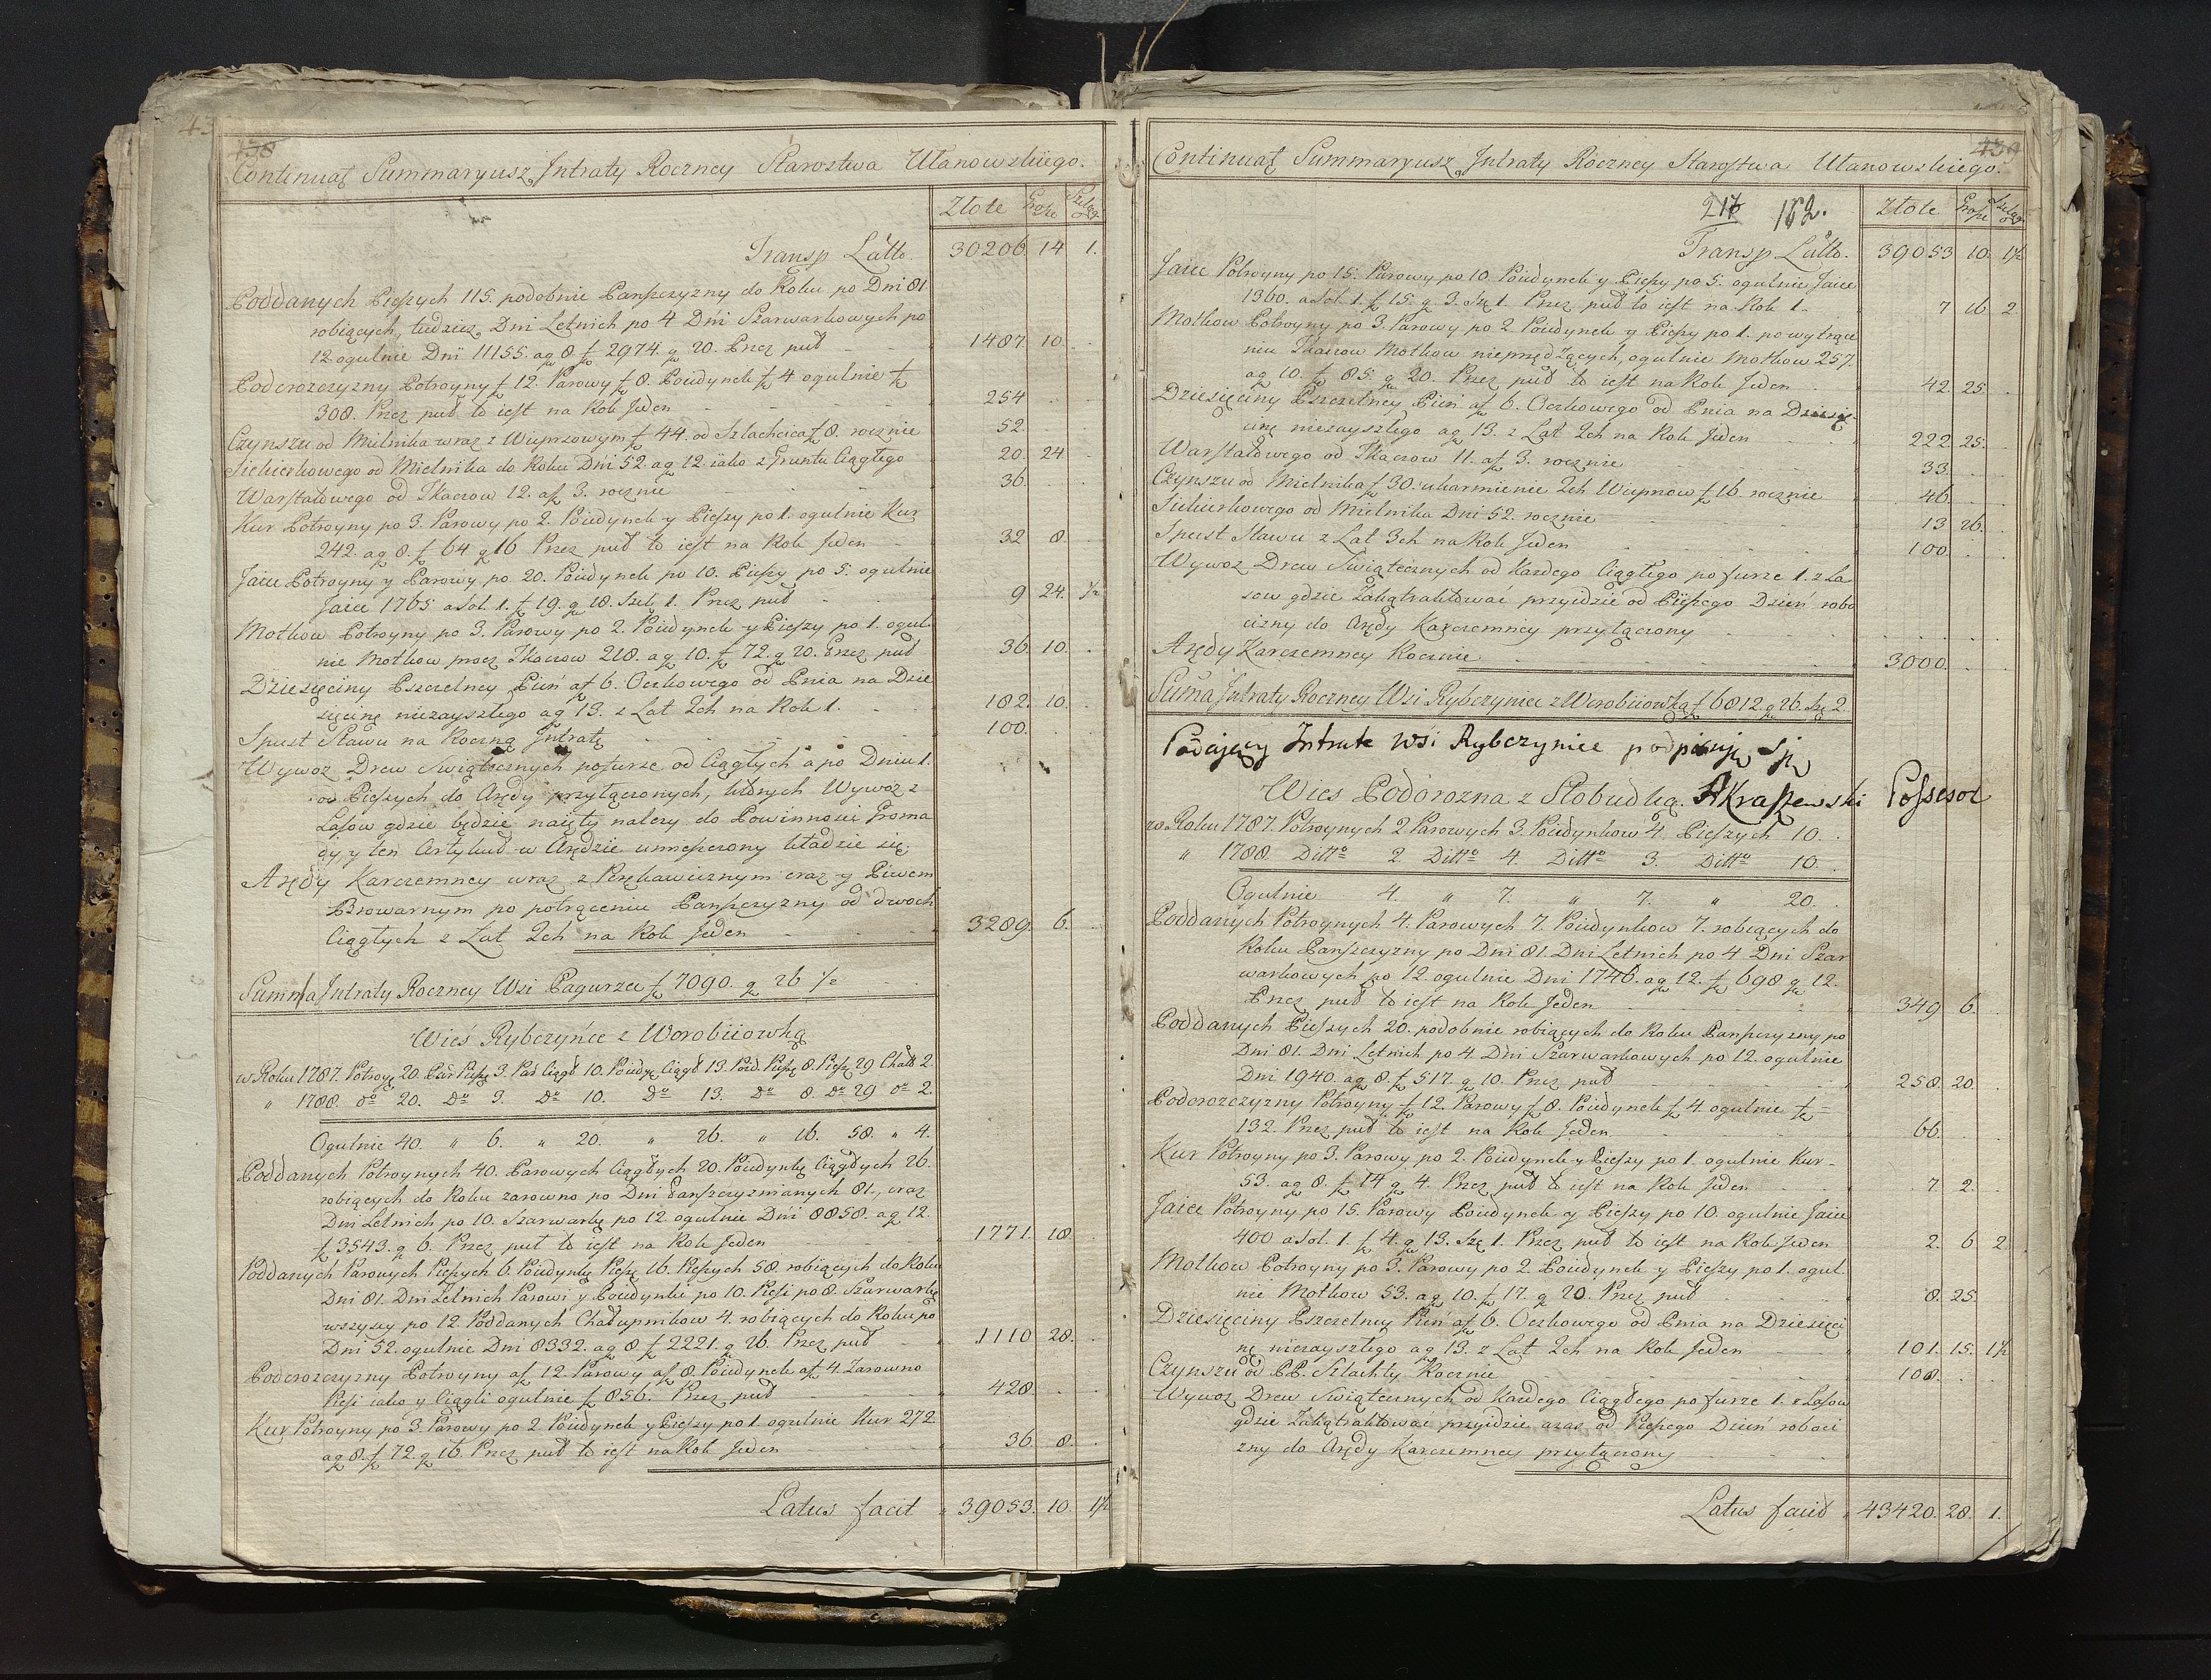 43
438
Continuat Summaryusz Intraty Roczney Starostwa Ułanowskiego.
Złote Grosze Szeląg
Transp Latto. 30206. 14 1.
Poddanych Pieszych 115. podobnie Panszczyzny do Roku po Dni 81.
robiących, tudziesz Dni Letnich po 4 Dni Szarwarkowych po
12 ogulnie Dni 11155. a gr 8 f 2974. gr 20. Przez puł 1487. 10.
Podorozczyzny Potroyny f 12. Parowy f 8. Poiedynek f 4 ogulnie f
308. Przez puł to iest na Rok Jeden 254
Czynszu od Mielnika wraz z Wieprzowym f 44. od Szlachcica f 8. rocznie 52.
Siekierkowego od Mielnika do Roku Dni 52. a gr 12. iako z Gruntu Ciągłego 20. 24
Warsztatowego od Tkaczow 12. a f 3. rocznie 36.
Kur Potroyny po 3. Parowy po 2. Poiedynek y Pieszy po 1. ogulnie Kur
242. a gr 8. f 64 gr 16 Przez puł to iest na Rok Jeden 32 8.
Jaiec Potroyny y Parowy po 20. Poiedynek po 10. Pieszy po 5. ogulnie
Jaiec 1765 a Sol. 1. f 19. gr 18. Szel 1. Przez puł 9 24. 1/2
Motkow Potroyny po 3. Parowy po 2. Poiedynek y Pieszy po 1. ogul
nie Motkow procz Tkaczow 218. a gr 10. f 72. gr 20. Przez puł 36. 10.
Dziesięciny Pszczelney Pień a f 6. Oczkowego od Pnia na Dzie
sięcinę niezayszłego a gr 13. z Lat 2ch na Rok 1. 182. 10.
Spust Stawu na Roczną Intratę 100.
Wywoz Drew Swiątecznych po furze od Ciągłych a po Dniu 1.
od Pieszych do Arędy przyłączonych, których Wywoz z
Lasow gdzie będzie naięty nalezy do Powinnosci Groma
dy y ten Artykuł w Arędzie umieszczony kładzie się.
Arędy Karczemney wraz z Rękawicznym oraz y Piwem
Browarnym po potrąceniu Panszczyzny od dwoch
Ciągłych z Lat 2ch na Rok Jeden 3289. 6.
Summa Intraty Roczney Wsi Pagurza f 7090. gr 26 1/2
Wieś Rybczyńce z Worobiiowką
w Roku 1787. Potroy 20. Par Piesz 3. Par Ciągł 10. Poiedyn Ciągł 13. Poied. Piesz 8. Piesz 29 Chałł 2.
" 1788. do 20. Do 3. Do 10. Do 13. Do 8. Do 29 do 2.
Ogulnie 40. " 6. " 20. " 26. " 16. 58. " 4.
Poddanych Potroynych 40. Parowych Ciągłych 20. Poiedynkę Ciągłych 26.
robiących do Roku zarowno po Dni Panszczyznianych 81., oraz
Dni Letnich po 10. Szarwarkę po 12. ogulnie Dni 8858. a gr 12.
f 3543. gr 6. Przez puł to iest na Rok Jeden 1771. 18.
Poddanych Parowych Pieszych 6. Poiedynkę Piesz 16. Pieszych 58. robiących do Roku
Dni 81. Dni Letnich Parowi y Poiedynki po 10. Piesi po 8. Szarwarkę
wszyscy po 12. Poddanych Chałupnikow 4. robiących do Roku po
Dni 52. ogulnie Dni 8332. a gr 8 f 2221. gr 26. Przez puł 1110 28.
Podorozczyzny Potroyny a f 12. Parowy a f 8. Poiedynek a f 4. Zarowno
Piesi iako y Ciągli ogulnie f 856. Przez puł 428
Kur Potroyny po 3. Parowy po 2. Poiedynek y Pieszy po 1. ogulnie Kur 272.
a gr 8. f 72. gr 16. Przez puł to iest na Rok Jeden 36. 8.
Latus facit 39053. 10. 1 1/2
439
Continuat Summaryusz Intraty Roczney Starostwa Ułanowskiego.
162. Złote Grosze Szeląg
Transp Latto. 39053 10. 1 1/2
Jaiec Potroyny po 15. Parowy po 10. Poiedynek y Pieszy po 5. ogulnie Jaiec
1360. a Sol. 1. f 15. gr 3. Szę 1. Przez puł to iest na Rok 1. 7 16 2
Motkow Potroyny po 3. Parowy po 2. Poiedynek y Pieszy po 1. po wytrące
niu Tkaczow Motkow nieprzędzących, ogulnie Motkow 257.
a gr 10. f 85. gr 20. Przez puł to iest na Rok Jeden 42. 25.
Dziesięciny Pszczelney Pień a f 6. Oczkowego od Pnia na Dziesię
cinę niezayszłego a gr 13. z Lat 2ch na Rok Jeden 222. 25.
Warsztatowego od Tkaczow 11. a f 3. rocznie 33.
Czynszu od Mielnika f 30. ukarmienie 2ch Wieprzow f 16. rocznie 46.
Siekierkowego od Mielnika Dni 52. rocznie 13 26.
Spust Stawu z Lat 3ch na Rok Jeden 100.
Wywoz Drew Swiątecznych od Kazdego Ciągłego po furze 1. z La
sow gdzie Zakątraktowac przyidzie od Pieszego Dzień robo
cizny do Arędy Karczemney przyłączony
Arędy Karczemney Rocznie 3000.
Summa Intraty Roczney Wsi Rybczynce z Worobiiowką f 6812. gr 26. Szę 2.
Podaięcy Intrate Wsi Rybczynice podpisuję się
AKraszewski Possesor
Wies Podorozna z Słobudką.
w Roku 1787. Potroynych 2 Parowych 3. Poiedynkow 4. Pieszych 10.
" 1788. Ditto 2. Ditto 4. Ditto 3. Ditto 10.
Ogulnie 4. " 7. " 7. " 20.
Poddanych Potroynych 4. Parowych 7. Poiedynkow 7. robiących do
Roku Panszczyzny po Dni 81. Dni Letnich po 4 Dni Szar
warkowych po 12 ogulnie Dni 1746. a gr 12. f 698 gr 12.
Przez puł to iest na Rok Jeden 349 6.
Poddanych Pieszych 20. podobnie robiących do Roku Panszczyzny po
Dni 81. Dni Letnich po 4. Dni Szarwarkowych po 12. ogulnie
Dni 1940. a gr 8. f 517. gr 10. Przez puł 258. 20.
Podorozczyzny Potroyny f 12. Parowy f 8. Poiedynek f 4. ogulnie f
132. Przez puł to iest na Rok Jeden 66.
Kur Potroyny po 3. Parowy po 2. Poiedynek y Pieszy po 1. ogulnie Kur
53. a gr 8. f 14 gr 4. Przez puł to iest na Rok Jeden 7. 2.
Jaiec Potroyny po 15. Parowy Poiedynek y Pieszy po 10. ogulnie Jaiec
400 a Sol. 1. f 4. gr 13. Szę 1. Przez puł to iest na Rok Jeden 2. 6 2
Motkow Potroyny po 3. Parowy po 2. Poiedynek y Pieszy po 1. ogul.
nie Motkow 53. a gr 10. f 17. gr 20. Przez puł 8. 25.
Dziesięciny Pszczelney Pień a f 6. Oczkowego od Pnia na Dziesięci
nę niezayszłego a gr 13. z Lat 2ch na Rok Jeden 101. 15. 1 1/2
Czynszu od PP. Szlachty Rocznie 108.
Wywoz Drew Swiątecznych od Kazdego Ciągłego po furze 1. z Lasow
gdzie Zakątraktowac przyidzie oraz od Pieszego Dzień roboci
zny do Arędy Karczemney przyłączony
Latus facid 43420. 28. 1.